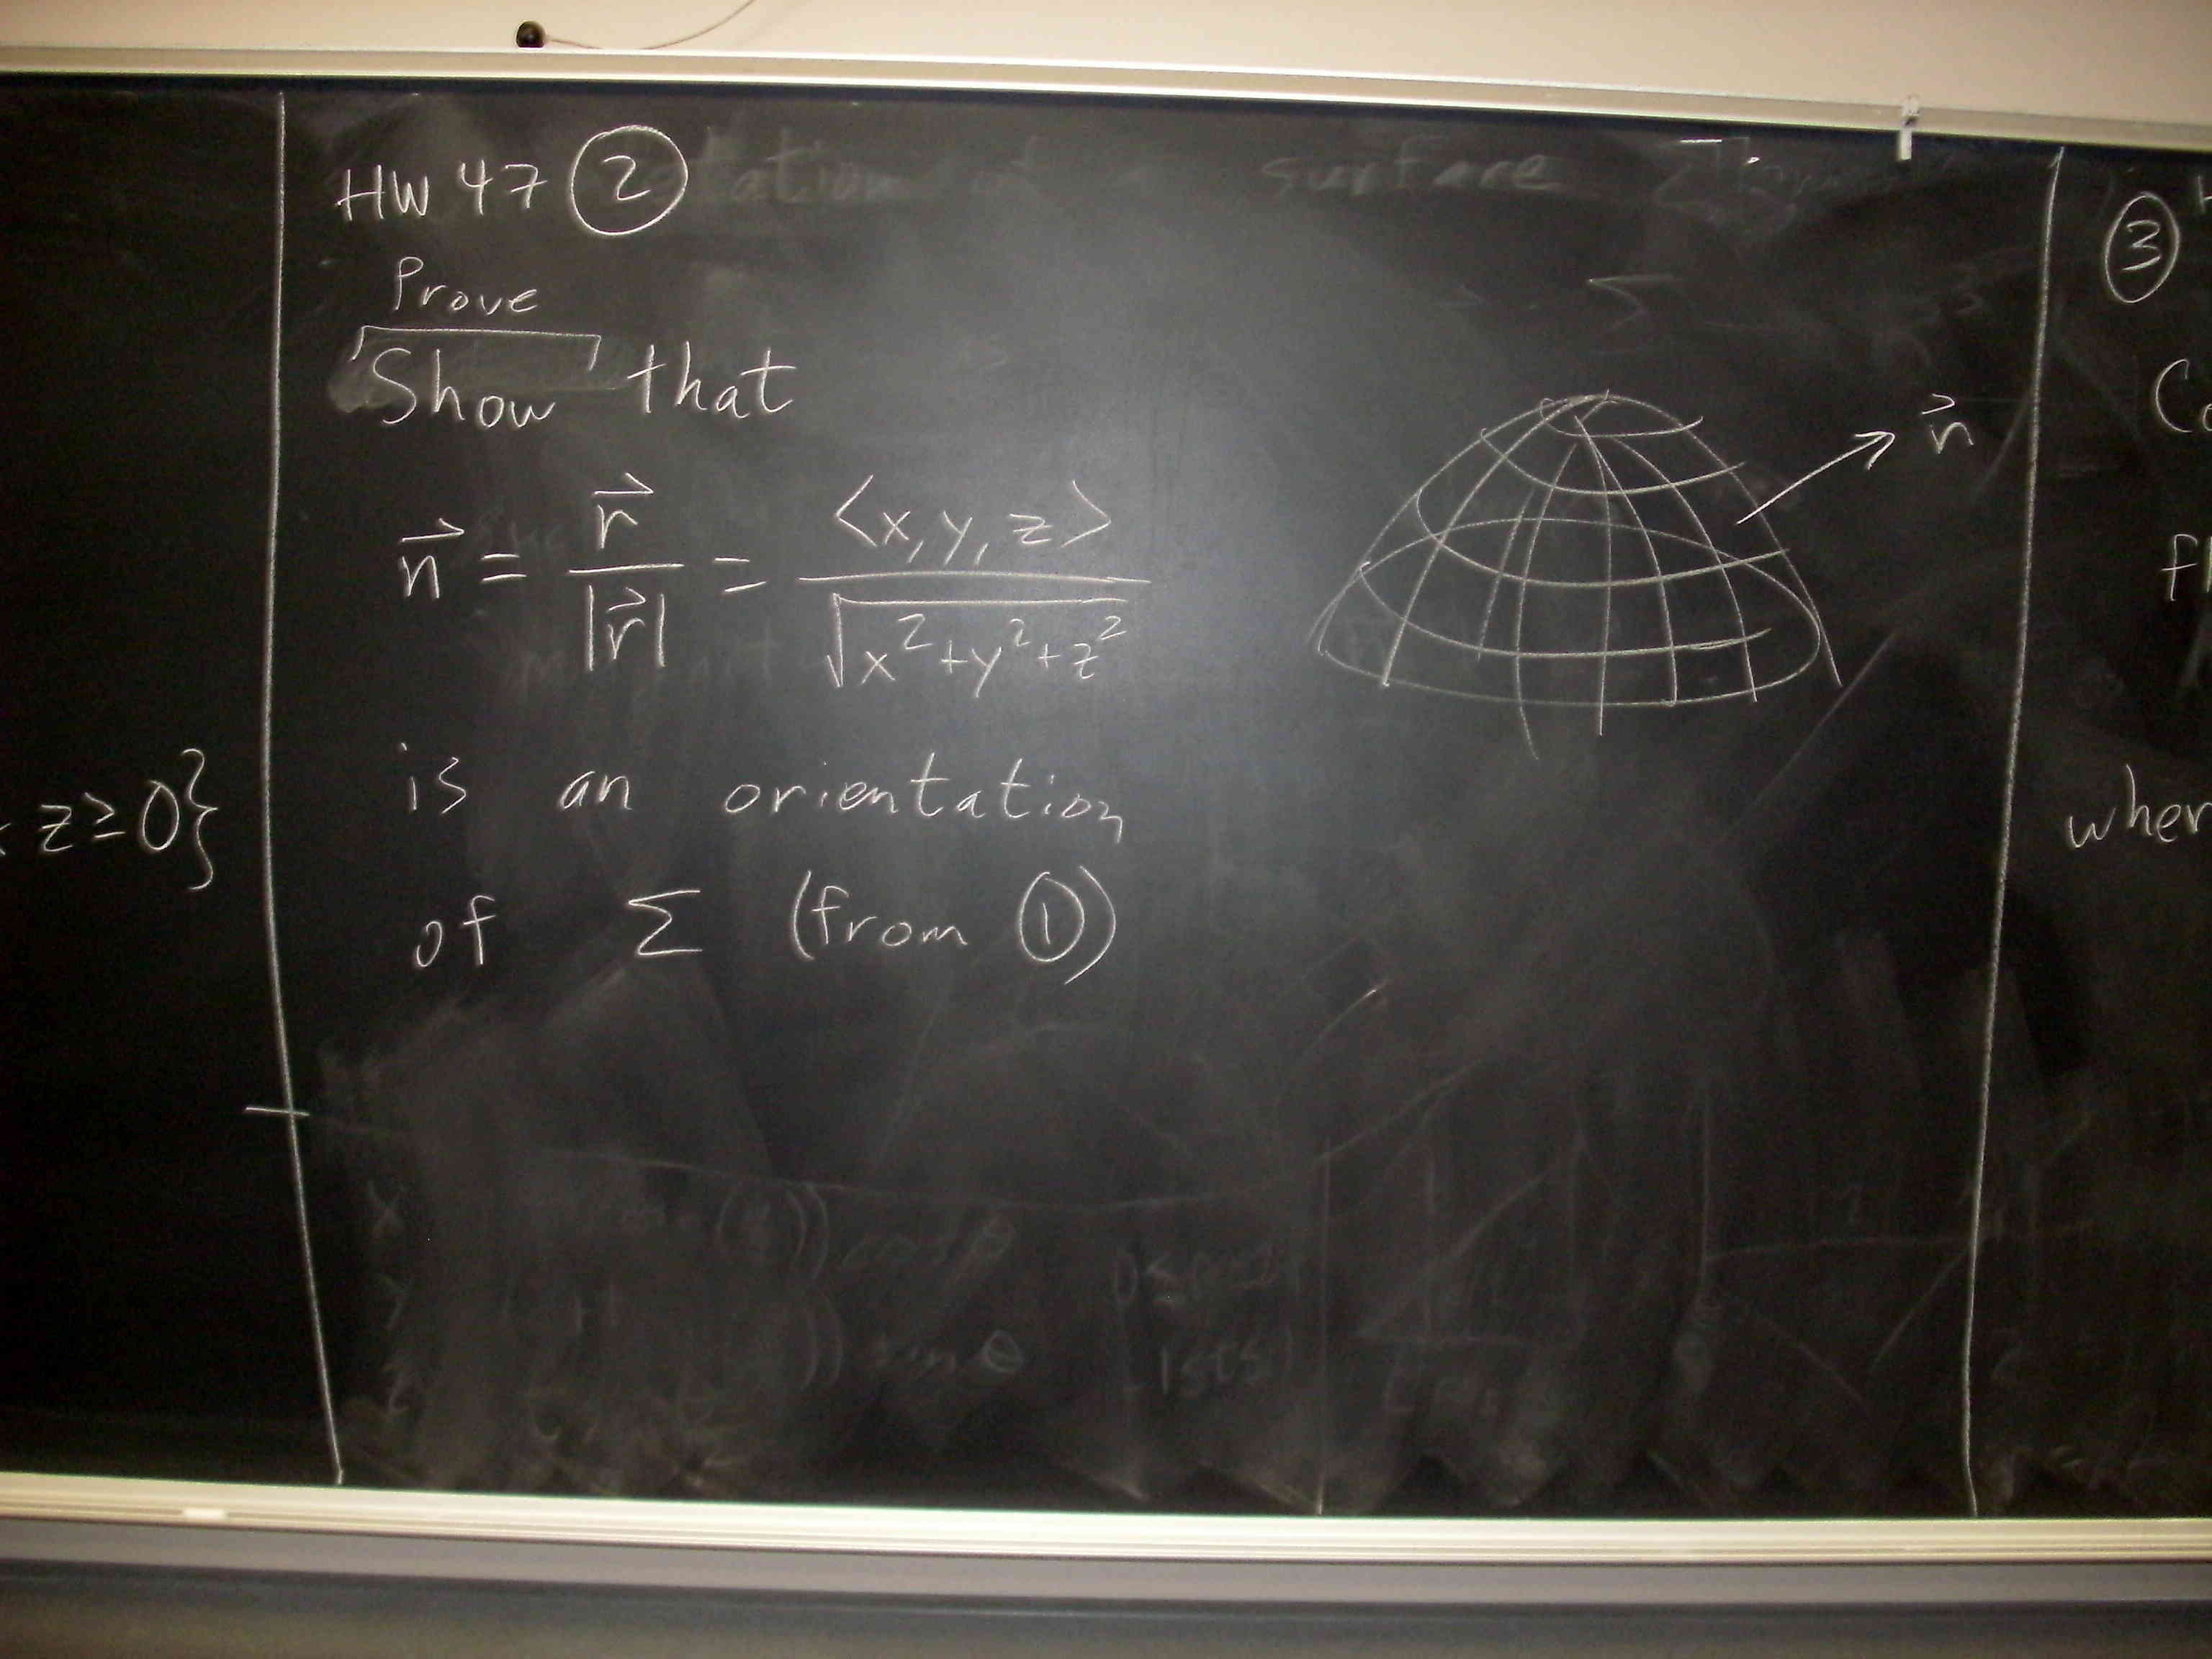 HW 47 ②
Prove
Show that
n⃗ = r⃗ / |r⃗| = <x, y, z> / √(x²+y²+z²)
is an orientation
of Σ (from ①)
n⃗
z ≥ 0}
③
wher
surface